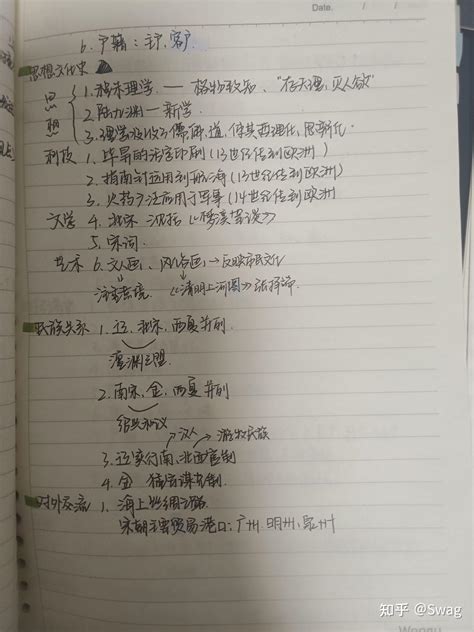 Date.
6. 户籍：主户、客户
思想文化史
思想 1. 程朱理学 — 格物致知、"存天理，灭人欲"
2. 陆九渊 — 心学
3. 理学吸收了儒、佛、道，使其更理性化、思辨化.
科技 1. 毕昇的活字印刷（13世纪传到欧洲）
2. 指南针应用到航海（13世纪传到欧洲）
3. 火药广泛应用于军事（14世纪传到欧洲）
文学 4. 北宋 沈括《梦溪笔谈》
5. 宋词.
艺术 6. 文人画、风俗画 → 反映市民文化
注重意境 《清明上河图》张择端.
民族关系 1. 辽、北宋、西夏并列.
澶渊之盟
2. 南宋、金、西夏并列
绍兴和议
汉人 游牧民族
3. 辽实行南、北面官制
4. 金 猛安谋克制.
对外交流 1. 海上丝绸之路
宋朝主要贸易港口：广州、明州、泉州
知乎 @Swag